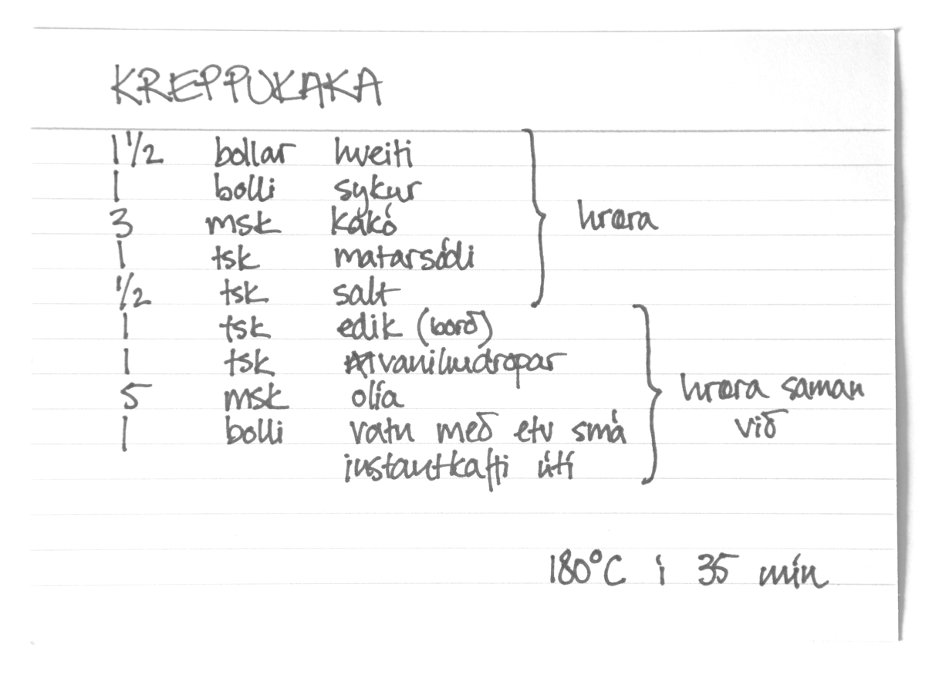 KREPPUKAKA
1 1/2 bollar hveiti
1 bolli sykur
3 msk kakó hræra
1 tsk matarsódi
1/2 tsk salt
1 tsk edik (borð)
1 tsk vanilludropar
5 msk olía hræra saman
1 bolli vatn með etv smá við
instantkaffi útí
180°C í 35 mín